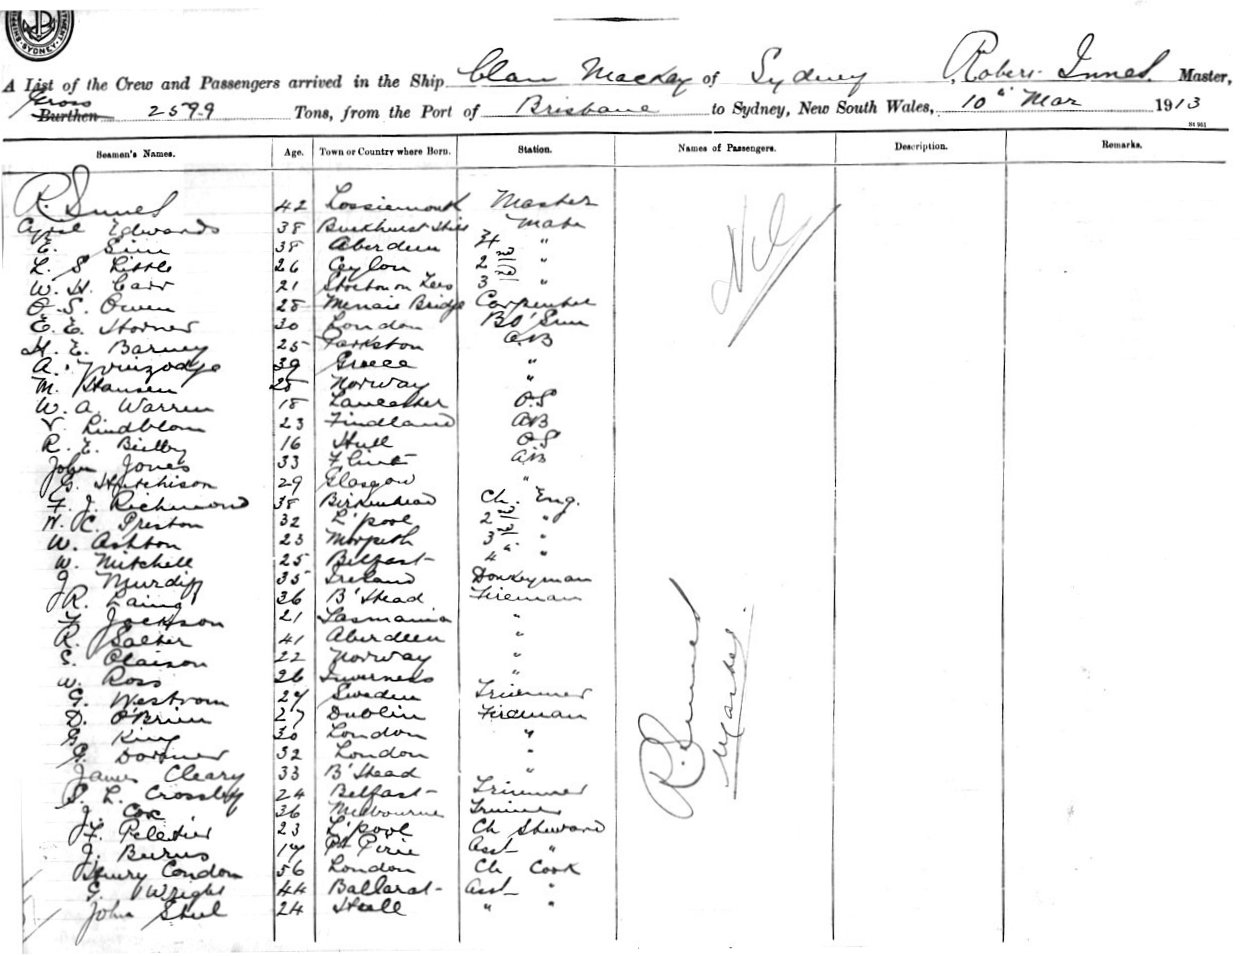 SYDNEY
A List of the Crew and Passengers arrived in the Ship Clan Mackay of Sydney Robert Innes Master,
Gross
Burthen 2599 Tons, from the Port of Brisbane to Sydney, New South Wales, 10th Mar 1913
St 961
Seamen's Names. Age. Town or Country where Born. Station. Names of Passengers. Description. Remarks.
R. Innes 42 Lossiemouth Master
Cyril Edwards 38 Buckhurst Hill Mate
E. Sim 38 Aberdeen "
L. S. Little 26 Ceylon 2nd "
W. H. Carr 21 Stockton on Tees 3rd "
O. S. Owen 28 Menai Bridge Carpenter
E. E. Horner 30 London Bo'Sun
H. E. Barney 25 Parkston AB
A. 39 Greece "
M. Hansen 25 Norway "
W. A. Warren 18 Lancaster O.S
V. Lindblom 23 Findland AB
R. E. Bielby 16 Hull OS
John Jones 33 Flint AB
G. Hutchison 29 Glasgow "
F. J. Richmond 38 Birkenhead Ch. Eng.
W. C. Preston 32 L'pool 2nd "
W. Ashton 23 Morpeth 3rd "
W. Mitchell 25 Belfast 4th "
J. Murdiff 35 Ireland Donkeyman
R. Laing 36 B'Head Fireman
F. Jackson 21 Tasmania "
R. Salter 41 Aberdeen "
S. Olaison 22 Norway "
W. Ross 26 Inverness "
G. Westrom 27 Sweden Trimmer
D. O'Brien 27 Dublin Fireman
G. King 30 London "
G. Dormer 32 London "
James Cleary 33 B'Head "
S. L. Crossley 24 Belfast Trimmer
J. Cox 36 Melbourne Trimmer
F. Peletier 23 L'pool Ch Steward
J. Burns 17 Pt Pirie Asst "
Henry Condom 56 London Ch Cook
G. Wright 44 Ballarat Asst "
John Steel 24 Hull " "
Nil
R. Innes
Master.